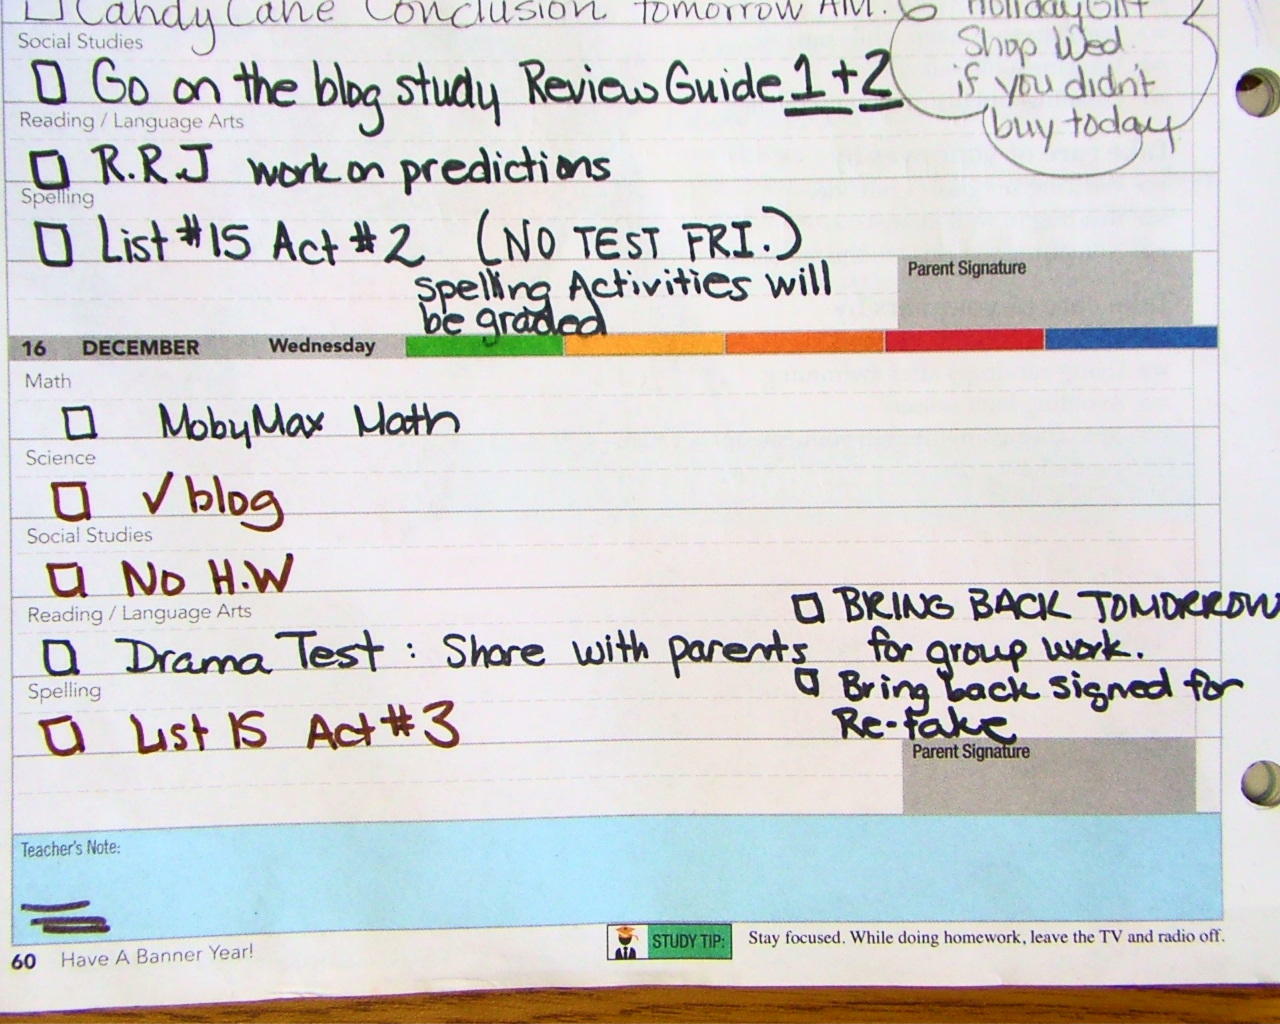 Candy Cane Conclusion tomorrow AM.
Holiday Gift
Shop Wed.
if you didn't
buy today
Social Studies
Go on the blog study Review Guide 1+2
Reading / Language Arts
R.R.J work on predictions
Spelling
List #15 Act #2 (NO TEST FRI.)
Spelling Activities will
be graded
Parent Signature
16 DECEMBER Wednesday
Math
MobyMax Math
Science
✓ blog
Social Studies
No H.W
Reading / Language Arts
Drama Test : Share with parents
BRING BACK TOMORROW
for group work.
Bring back signed for
Re-take
Spelling
List 15 Act #3
Parent Signature
Teacher's Note:
60 Have A Banner Year!
STUDY TIP: Stay focused. While doing homework, leave the TV and radio off.